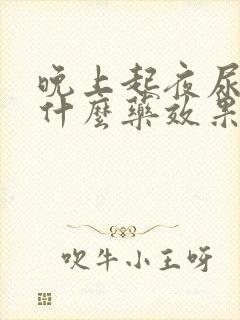 晚上起夜尿
什麼藥效果
吹牛小王呀